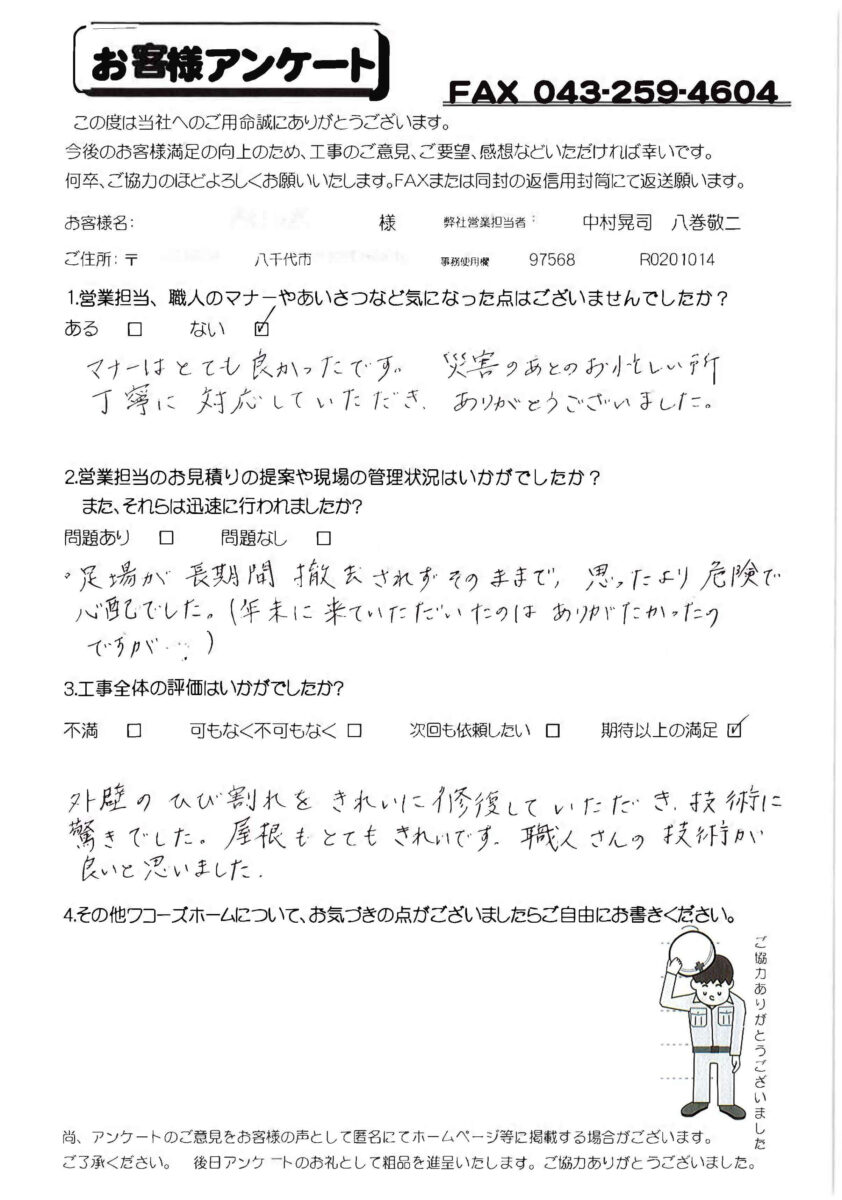 お客様アンケート
FAX 043-259-4604
この度は当社へのご用命誠にありがとうございます。
今後のお客様満足の向上のため、工事のご意見、ご要望、感想などいただければ幸いです。
何卒、ご協力のほどよろしくお願いいたします。FAXまたは同封の返信用封筒にて返送願います。
お客様名: 様 弊社営業担当者: 中村晃司 八巻敬二
ご住所:〒 八千代市 事務使用欄 97568 R0201014
1.営業担当、職人のマナーやあいさつなど気になった点はございませんでしたか?
ある □ ない ☑
マナーはとても良かったです。 災害のあとのお忙しい所
丁寧に 対応していただき、ありがとうございました。
2.営業担当のお見積りの提案や現場の管理状況はいかがでしたか?
また、それらは迅速に行われましたか?
問題あり □ 問題なし □
・足場が 長期間 撤去されずそのままで、思ったより 危険で
心配でした。(年末に来ていただいたのは ありがたかったの
ですが…。)
3.工事全体の評価はいかがでしたか?
不満 □ 可もなく不可もなく □ 次回も依頼したい □ 期待以上の満足 ☑
外壁の ひび割れを きれいに修復して いただき、技術に
驚きでした。屋根もとても きれいです。職人さんの 技術が
良いと思いました。
4.その他ワコーズホームについて、お気づきの点がございましたらご自由にお書きください。
ご協力ありがとうございました
尚、アンケートのご意見をお客様の声として匿名にてホームページ等に掲載する場合がございます。
ご了承ください。 後日アンケートのお礼として粗品を進呈いたします。ご協力ありがとうございました。